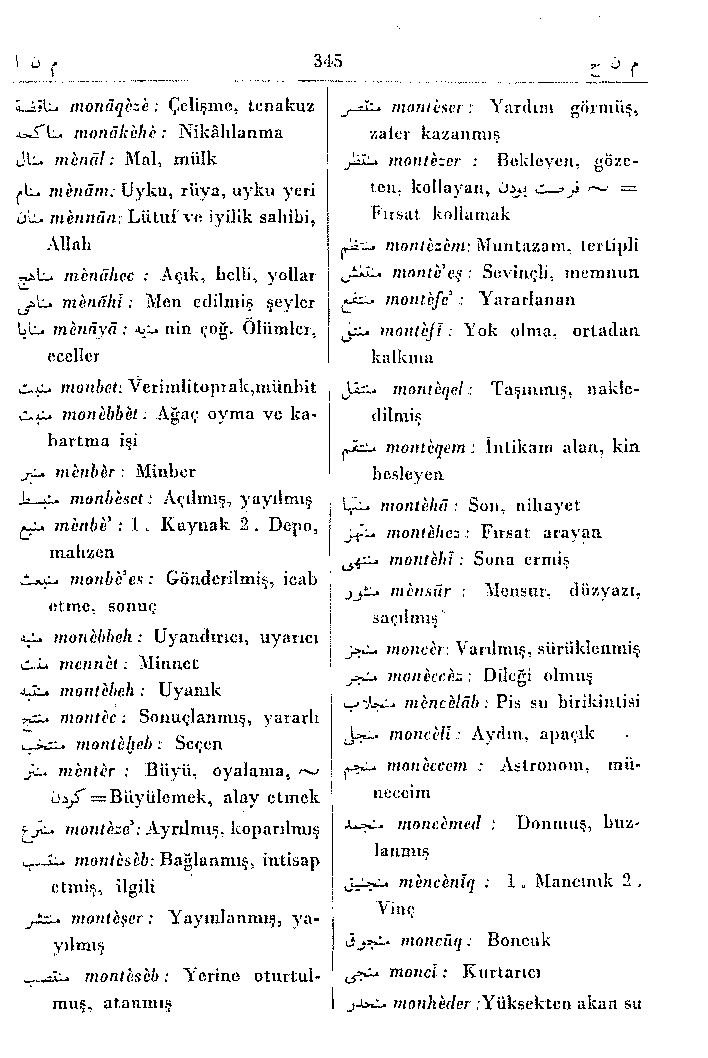 م ن ا 345 م ن ج
مناقضة monāqèzè : Çelişme, tenakuz
مناكحه monākèhè : Nikâhlanma
منال mènāl : Mal, mülk
منام mènām: Uyku, rüya, uyku yeri
منان mènnān: Lütuf ve iyilik sahibi,
Allah
مناهج mènāhec : Açık, belli, yollar
مناهى mènāhī : Men edilmiş şeyler
منايا mènāyā : منيه nin çoğ. Ölümler,
eceller
منبت monbet: Verimli toprak, münbit
منبت monèbbèt : Ağaç oyma ve ka-
bartma işi
منبر mènbèr : Minber
منبسط monbèset : Açılmış, yayılmış
منبع mènbè' : 1. Kaynak 2. Depo,
mahzen
منبعث monbè'es : Gönderilmiş, icab
etme, sonuç
منبه monèbbeh : Uyandırıcı, uyarıcı
منت mennèt : Minnet
منتبه montèbeh : Uyanık
منتج montèc : Sonuçlanmış, yararlı
منتخب montèḫeb : Seçen
منتر mèntèr : Büyü, oyalama, ~
كردن = Büyülemek, alay etmek
منتزع montèze' : Ayrılmış, koparılmış
منتسب montèsèb: Bağlanmış, intisap
etmiş, ilgili
منتشر montèşer : Yayınlanmış, ya-
yılmış
منتصب montèsèb : Yerine oturtul-
muş, atanmış
منتصر montèser : Yardım görmüş,
zafer kazanmış
منتظر montèzer : Bekleyen, göze-
ten, kollayan, فرصت بودن ~ =
Fırsat kollamak
منتظم montèzèm: Muntazam, tertipli
منتعش montè'eş : Sevinçli, memnun
منتفع montèfe' : Yararlanan
منتفى montèfī : Yok olma, ortadan
kalkma
منتقل montèqel : Taşınmış, nakle-
dilmiş
منتقم montèqem : İntikam alan, kin
besleyen
منتها montèhā : Son, nihayet
منتهز montèhez : Fırsat arayan
منتهى montèhī : Sona ermiş
منثور mènsūr : Mensur, düzyazı,
saçılmış
منجر moncèr : Varılmış, sürüklenmiş
منجز monèccèz : Dileği olmuş
منجلاب mèncèlāb : Pis su birikintisi
منجلى moncèlī : Aydın, apaçık
منجم monèccem : Astronom, mü-
neccim
منجمد moncèmed : Donmuş, buz-
lanmış
منجنيق mèncènīq : 1. Mancınık 2.
Vinç
منجوق moncūq : Boncuk
منجى moncī : Kurtarıcı
منحدر monhèder : Yüksekten akan su